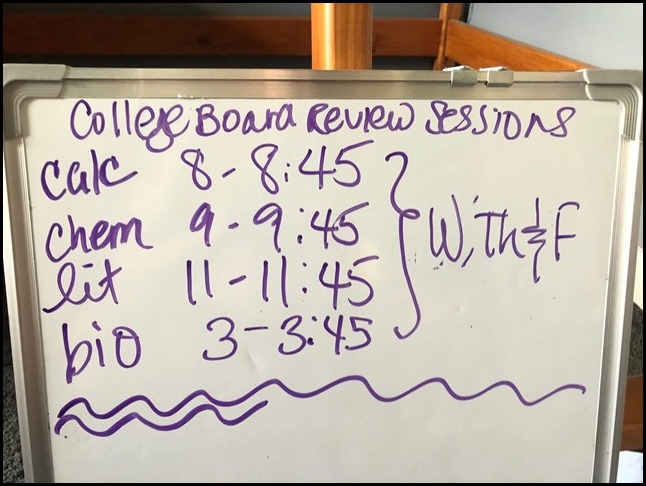 College Board Review Sessions
calc 8-8:45
chem 9-9:45
lit 11-11:45
bio 3-3:45
W, Th & F